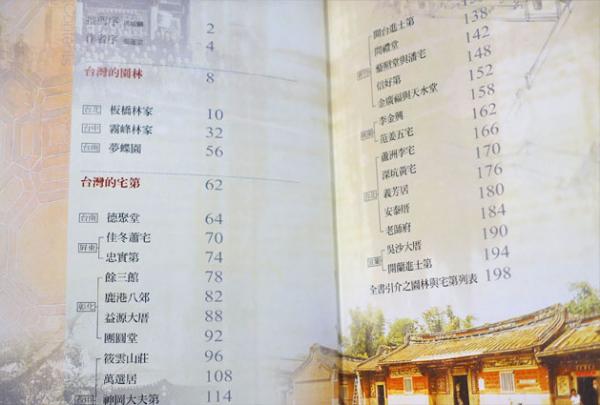 作者序 4
台灣的園林 8
台北 板橋林家 10
台中 霧峰林家 32
台南 夢蝶園 56
台灣的宅第 62
台南 德聚堂 64
屏東 佳冬蕭宅 70
忠實第 74
彰化 餘三館 78
鹿港八郊 82
益源大厝 88
團圓堂 92
筱雲山莊 96
萬選居 108
神岡大夫第 114
138
開台進士第 142
問禮堂 148
152
信好第 158
金廣福與天水堂
李金興 162
范姜五宅 166
蘆洲李宅 170
深坑黃宅 176
義芳居 180
安泰厝 184
老師府 190
吳沙大厝 194
開蘭進士第
全書引介之園林與宅第列表 198